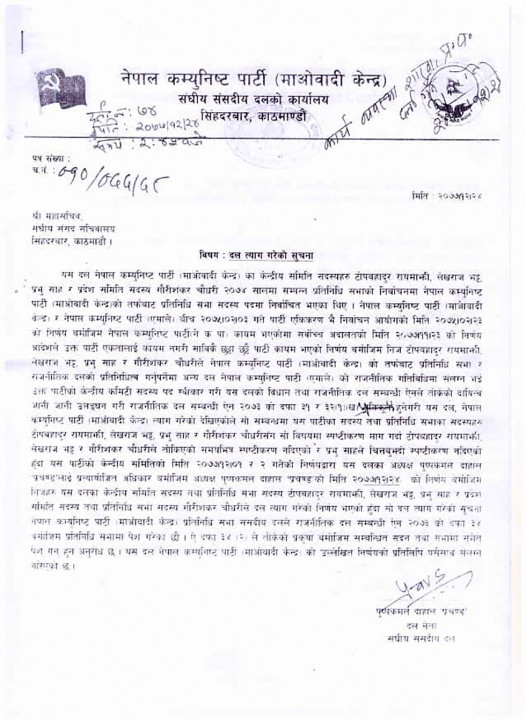 नेपाल कम्युनिष्ट पार्टी (माओवादी केन्द्र)
संघीय संसदीय दलको कार्यालय
सिंहदरबार, काठमाण्डौं
कार्य व्यवस्था शाखा, प्र.स.
दर्ता नं.: ७४
मिति: २०७७/१२/२४
समय :
पत्र संख्या :
च.नं. : ०१०/०७७/७८
मिति : २०७७।१२।२४
श्री महासचिव,
संघीय संसद सचिवालय
सिंहदरबार, काठमाडौं ।
विषय : दल त्याग गरेको सूचना
यस दल नेपाल कम्युनिष्ट पार्टी (माओवादी केन्द्र) का केन्द्रीय समिति सदस्यहरु टोपबहादुर रायमाझी, लेखराज भट्ट,
प्रभु साह र प्रदेश समिति सदस्य गौरीशंकर चौधरी २०७४ सालमा सम्पन्न प्रतिनिधि सभाको निर्वाचनमा नेपाल कम्युनिष्ट
पार्टी (माओवादी केन्द्र)को तर्फबाट प्रतिनिधि सभा सदस्य पदमा निर्वाचित भएका थिए । नेपाल कम्युनिष्ट पार्टी (माओवादी
केन्द्र) र नेपाल कम्युनिष्ट पार्टी (एमाले) बीच २०७५।०२।०३ गते पार्टी एकिकरण भै निर्वाचन आयोगको मिति २०७५।०२।२३
को निर्णय बमोजिम नेपाल कम्युनिष्ट पार्टी कायम भएकोमा सर्वोच्च अदालतको मिति २०७७।११।२३ को निर्णय
आदेशले उक्त पार्टी एकतालाई कायम नगरी साबिकै छुट्टा छुट्टै पार्टी कायम भएको निर्णय बमोजिम निज टोपबहादुर रायमाझी,
लेखराज भट्ट, प्रभु साह र गौरीशंकर चौधरीले नेपाल कम्युनिष्ट पार्टी (माओवादी केन्द्र) को तर्फबाट प्रतिनिधि सभा र
राजनीतिक दलको प्रतिनिधित्व गर्नुपर्नेमा अन्य दल नेपाल कम्युनिष्ट पार्टी (एमाले) को राजनीतिक गतिबिधिमा संलग्न भई
उक्त पार्टीको केन्द्रीय कमिटी सदस्य पद स्वीकार गरी यस दलको विधान तथा राजनीतिक दल सम्बन्धी ऐनले तोकेको दायित्व
जानी जानी उलङ्घन गरी राजनीतिक दल सम्बन्धी ऐन २०७३ को दफा ३१ र ३२ हुनेगरी यस दल, नेपाल
कम्युनिष्ट पार्टी (माओवादी केन्द्र) त्याग गरेको देखिएकोले सो सम्बन्धमा यस पार्टीका सभाका सदस्यहरु
टोपबहादुर रायमाझी, लेखराज भट्ट, प्रभु साह र गौरीशंकर चौधरीसंग सो विषयमा स्पष्टीकरण माग गर्दा टोपबहादुर रायमाझी,
लेखराज भट्ट र गौरीशंकर चौधरीले तोकिएको समयभित्र स्पष्टीकरण नदिएको र प्रभु साहले चित्तबुझ्दो स्पष्टीकरण नदिएको
हुँदा यस पार्टीको केन्द्रीय समितिको मिति २०७७।१२।०१ र २ गतेको निर्णयद्वारा यस दलका अध्यक्ष पुष्पकमल दाहाल
'प्रचण्ड'लाई प्रत्यायोजित अधिकार बमोजिम अध्यक्ष पुष्पकमल दाहाल 'प्रचण्ड'को मिति २०७७।१२।२४ को निर्णय बमोजिम
निजहरु यस दलका केन्द्रीय समिति सदस्य तथा प्रतिनिधि सभा सदस्य टोपबहादुर रायमाझी, लेखराज भट्ट, प्रभु साह र प्रदेश
समिति सदस्य तथा प्रतिनिधि सभा सदस्य गौरीशंकर चौधरीले दल त्याग गरेको निर्णय भएको हुँदा सो दल त्याग गरेको सूचना
नेपाल कम्युनिष्ट पार्टी (माओवादी केन्द्र) प्रतिनिधि सभा संसदीय दलले राजनीतिक दल सम्बन्धी ऐन २०७३ को दफा ३४
बमोजिम प्रतिनिधि सभामा पेश गरेका छौं । ऐ दफा ३४ (२) ले तोकेको प्रकृया बमोजिम सम्बन्धित सदन तथा सभामा समेत
पेश गर्न हुन अनुरोध छ । यस दल नेपाल कम्युनिष्ट पार्टी (माओवादी केन्द्र) को उल्लेखित निर्णयको प्रतिलिपि यसैसाथ संलग्न
गरिएको छ ।
पुष्पकमल दाहाल 'प्रचण्ड'
दल नेता
संघीय संसदीय दल